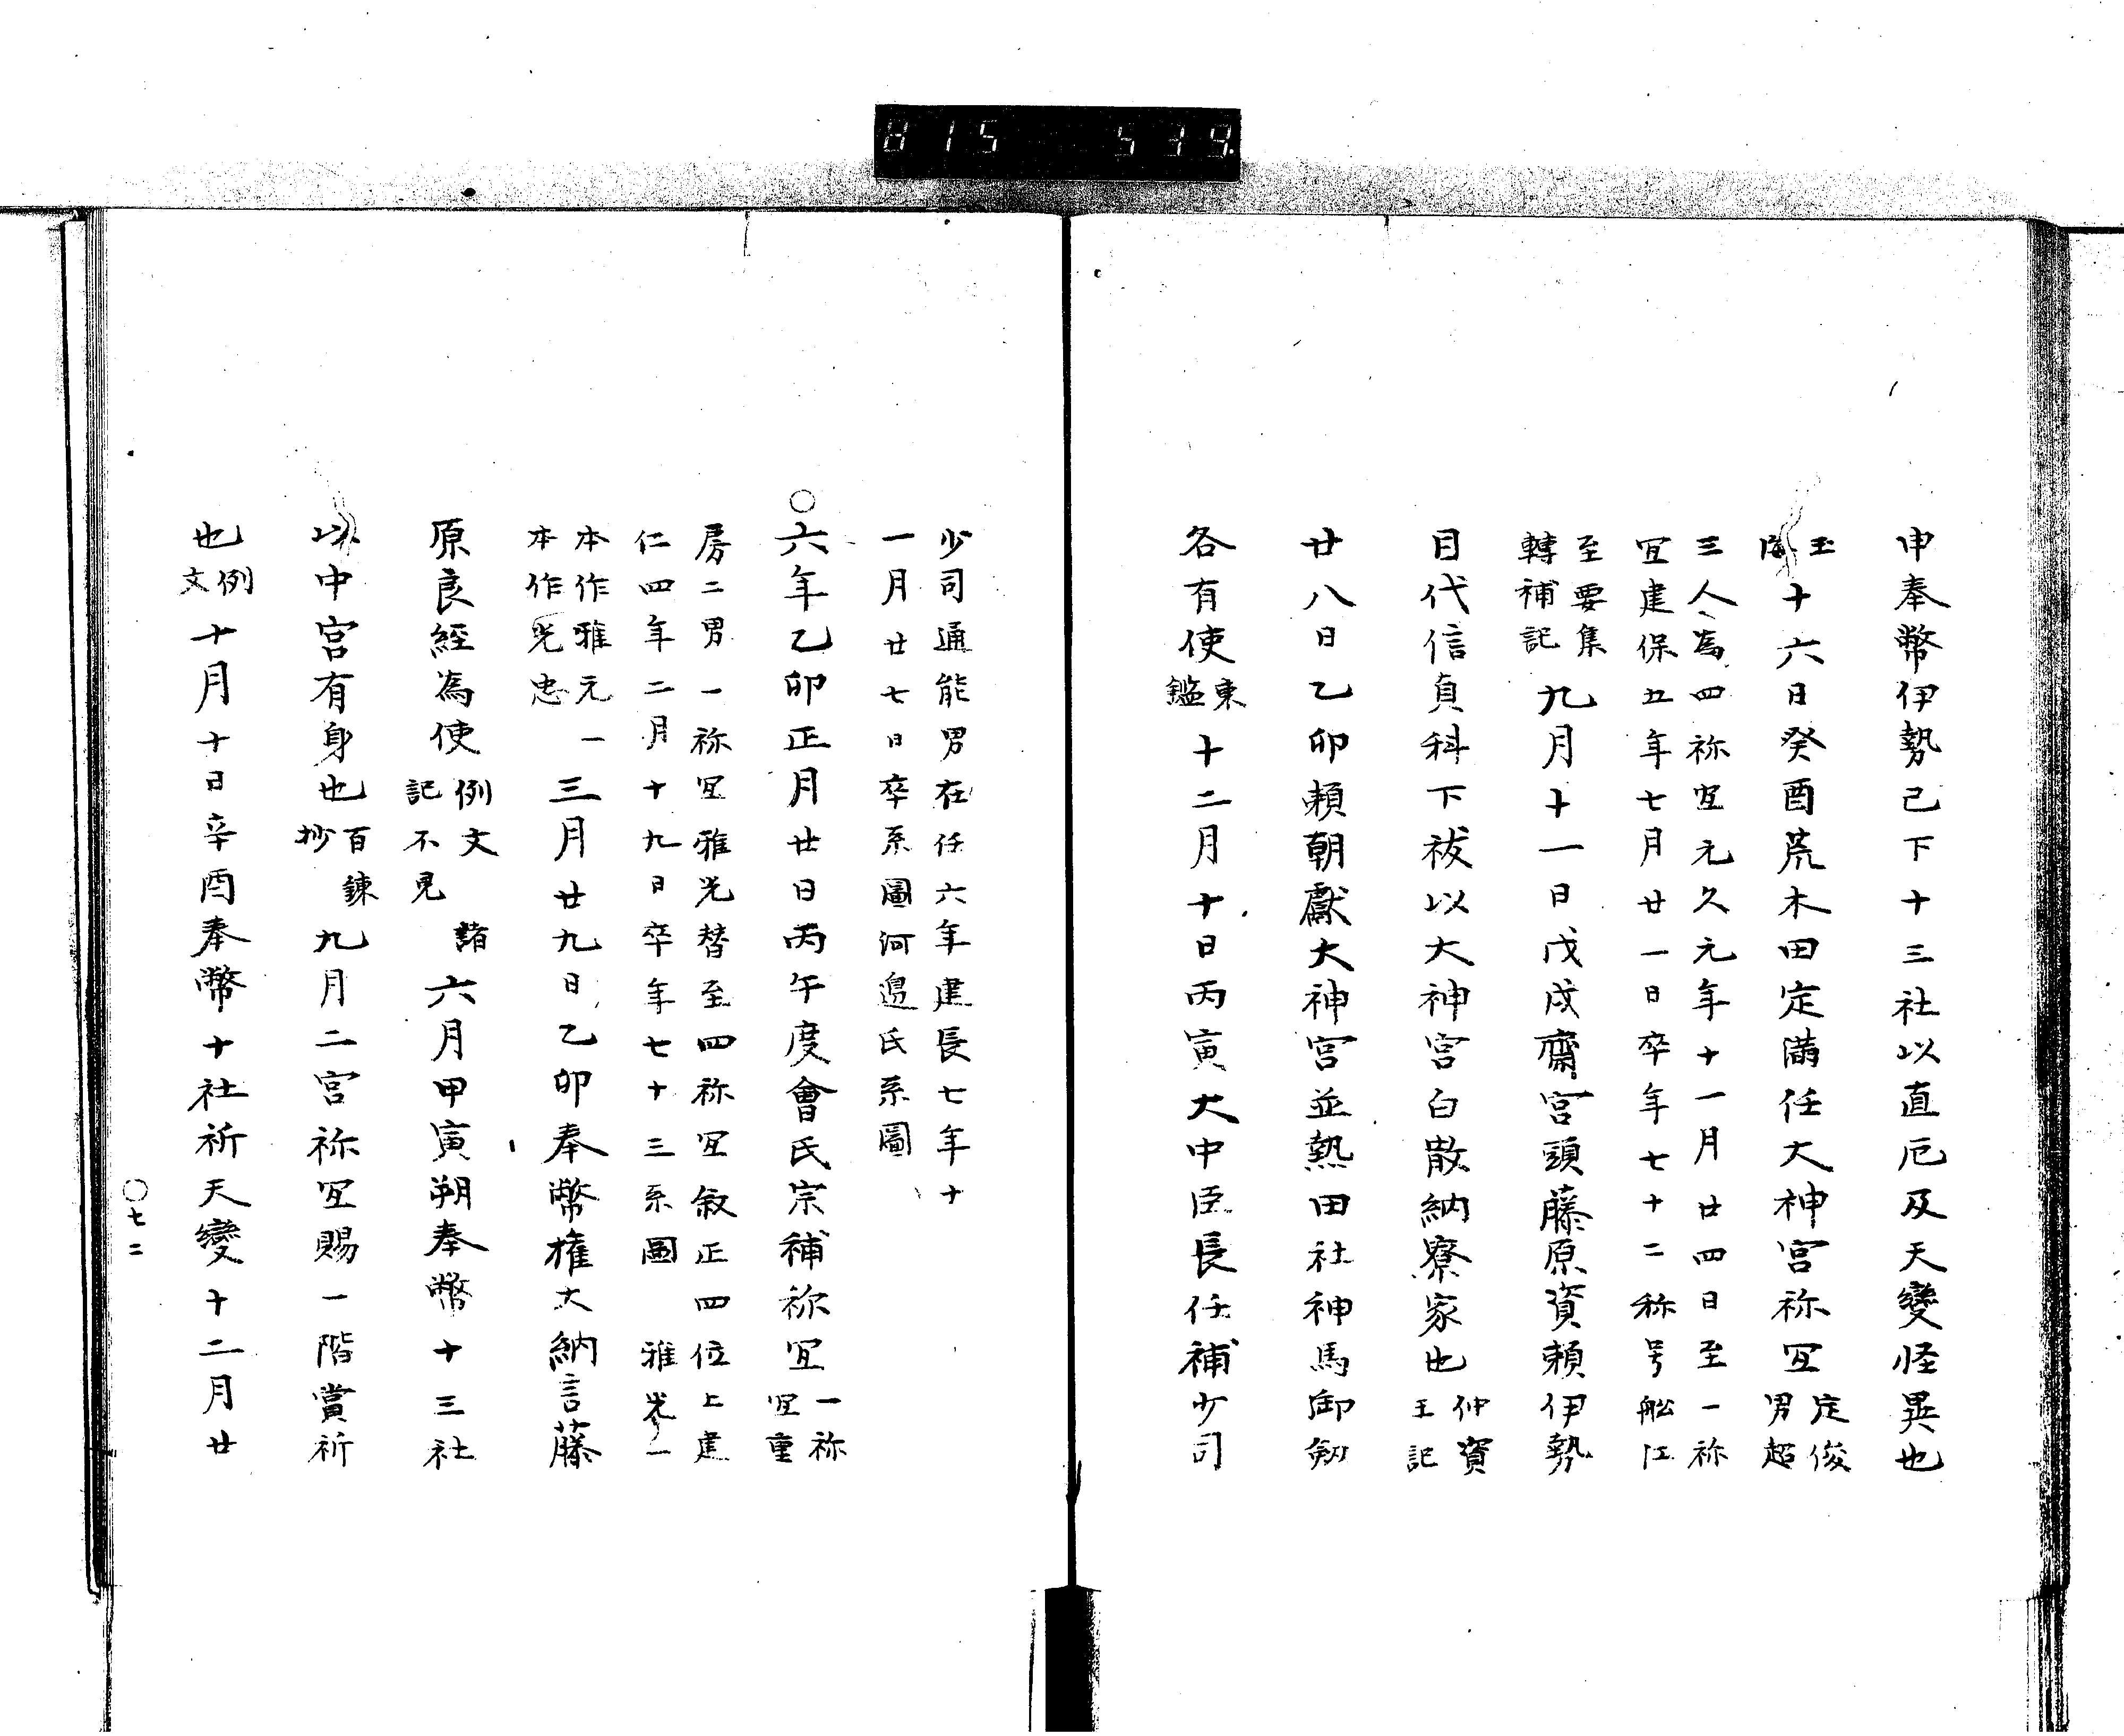 815 539
申奉幣伊勢已下十三社以直厄及天變怪異也
玉
海
十六日癸酉荒木田定滿任大神宮祢冝
定俊
男超
三人為四祢冝元久元年十一月廿四日至一祢
冝建保五年七月廿一日卒年七十二称号舩江
至要集
轉補記
九月十一日戊戌齋宮頭藤原資賴伊勢
目代信貞科下祓以大神宮白散納寮家也
仲資
王記
廿八日乙卯賴朝獻大神宮並熱田社神馬御剱
各有使
東
鑑
十二月十日丙寅大中臣長任補少司
少司通能男在任六年建長七年十
一月廿七日卒系圖河邉氏系圖
○六年乙卯正月廿日丙午度會氏宗補祢冝
一祢
冝重
房二男一祢冝雅光替至四祢冝敘正四位上建
仁四年二月十九日卒年七十三系圖 雅光一
本作雅元一
本作光忠
三月廿九日乙卯奉幣権大納言藤
原良經為使
例文 諸
記不見
六月甲寅朔奉幣十三社
以中宮有身也
百錬
抄
九月二宮祢冝賜一階賞祈
也
例
文
十月十日辛酉奉幣十社祈天變十二月廿
○七二